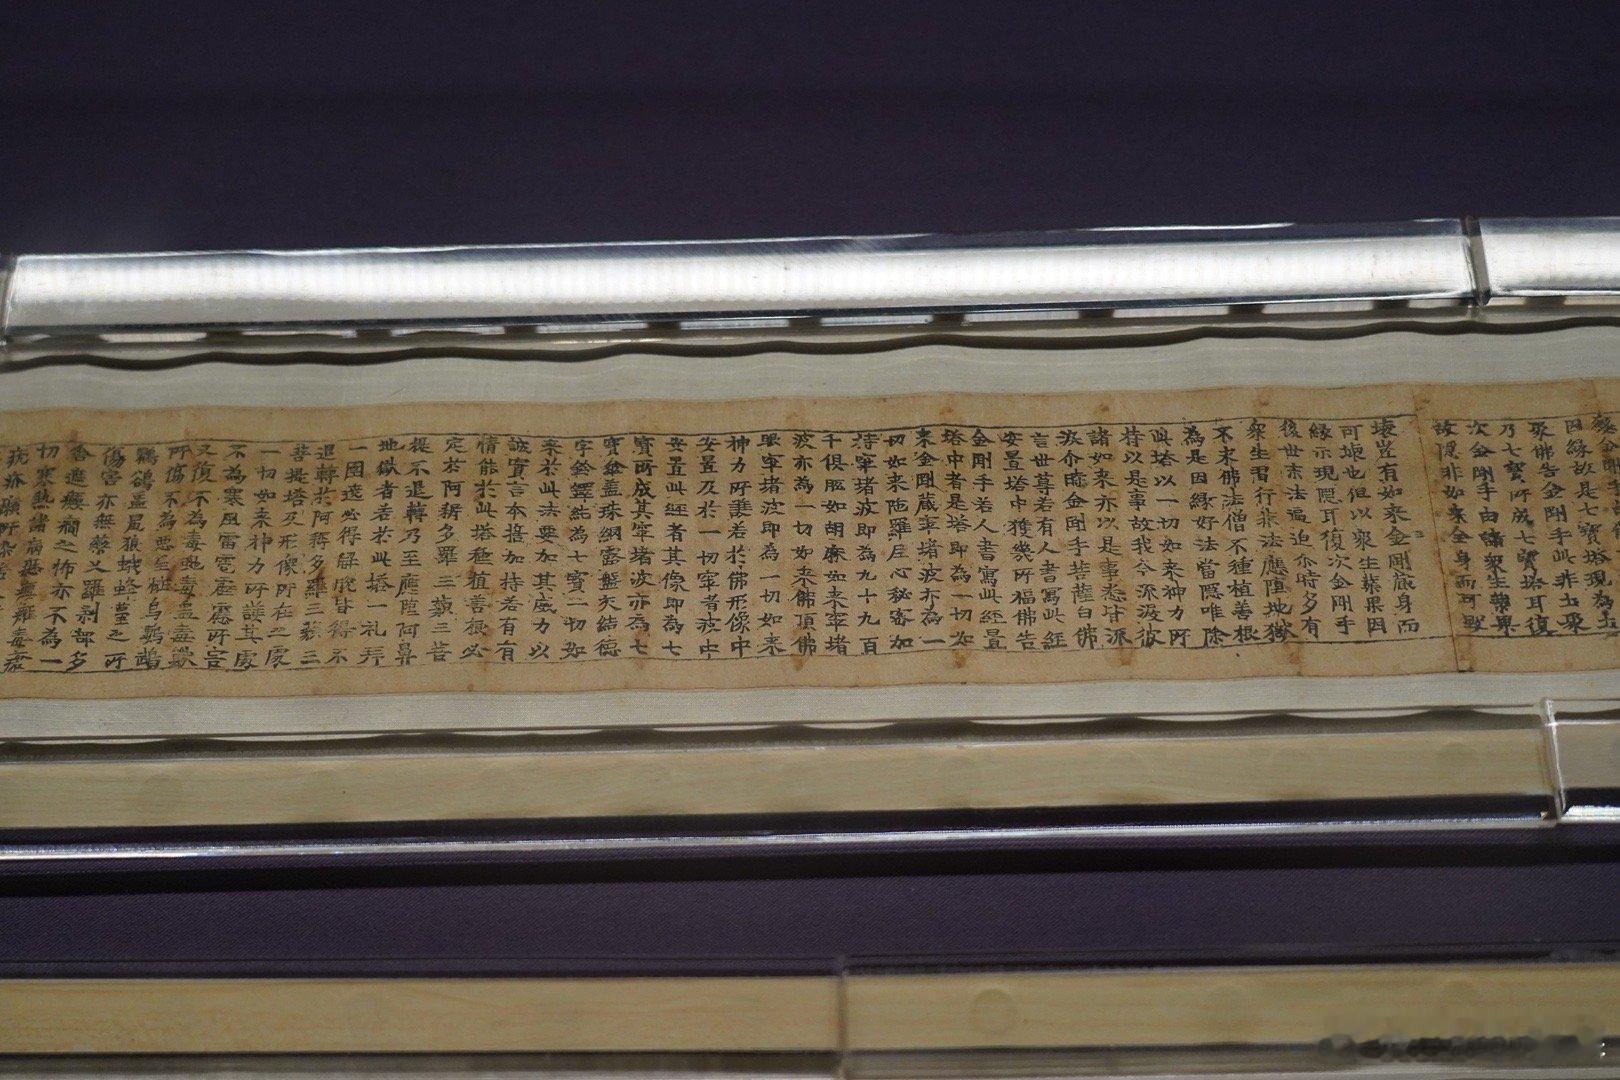 因緣故是七寶塔現為土
聚佛告金剛手此非土聚
乃七寶所成七寶塔耳復
次金剛手由諸衆生業果
故隱非如来全身而可毀
壞豈有如来金剛蔵身而
可壞也但以衆生業果因
緣示現隱耳復次金剛手
後世末法逼迫亦時多有
衆生習行非法應墮地獄
不求佛法僧不種植善根
為是因緣好法當隱唯除
此塔以一切如来神力所
持以是事故我今流淚彼
諸如来亦以是事悉皆派
波介時金剛手菩薩白佛
言世尊若有人書寫此經
安置塔中獲幾所福佛告
金剛手若人書寫此經置
塔中者是塔即為一切如
来金剛蔵窣堵波亦為一
切如来陁羅尼心秘密加
持窣堵波即為九十九百
千俱胝如胡麻如来窣堵
波亦為一切如来佛頂佛
眼窣堵波即為一切如来
神力所護若於佛形像中
安置及於一切窣者波中
安置此經者其像即為七
寶所成其窣堵波亦為七
寶傘盖珠網露盤交結德
字鈴鐸純為七寶一切如
来於此法要加其威力以
誠實言本誓加持若有有
情能於此塔種植善根必
定於阿耨多羅三藐三菩
提不退轉乃至應墮阿鼻
地獄者若於此塔一礼拜
一圍遶必得解脫皆得不
退轉於阿耨多羅三藐三
菩提塔及形像所在之處
一切如来神力所護其處
不為寒風雷雹霹靂所害
又復不為毒虵毒蟲毒獸
所傷不為惡星怪鳥鸚鵡
鸜鵒蟲鼠狼蛾蜂蠆之所
傷害亦無藥叉羅剎部多
舍遮癲癎之怖亦不為一
切寒熱諸病癧瘻癰毒瘡
疣疥癩所染